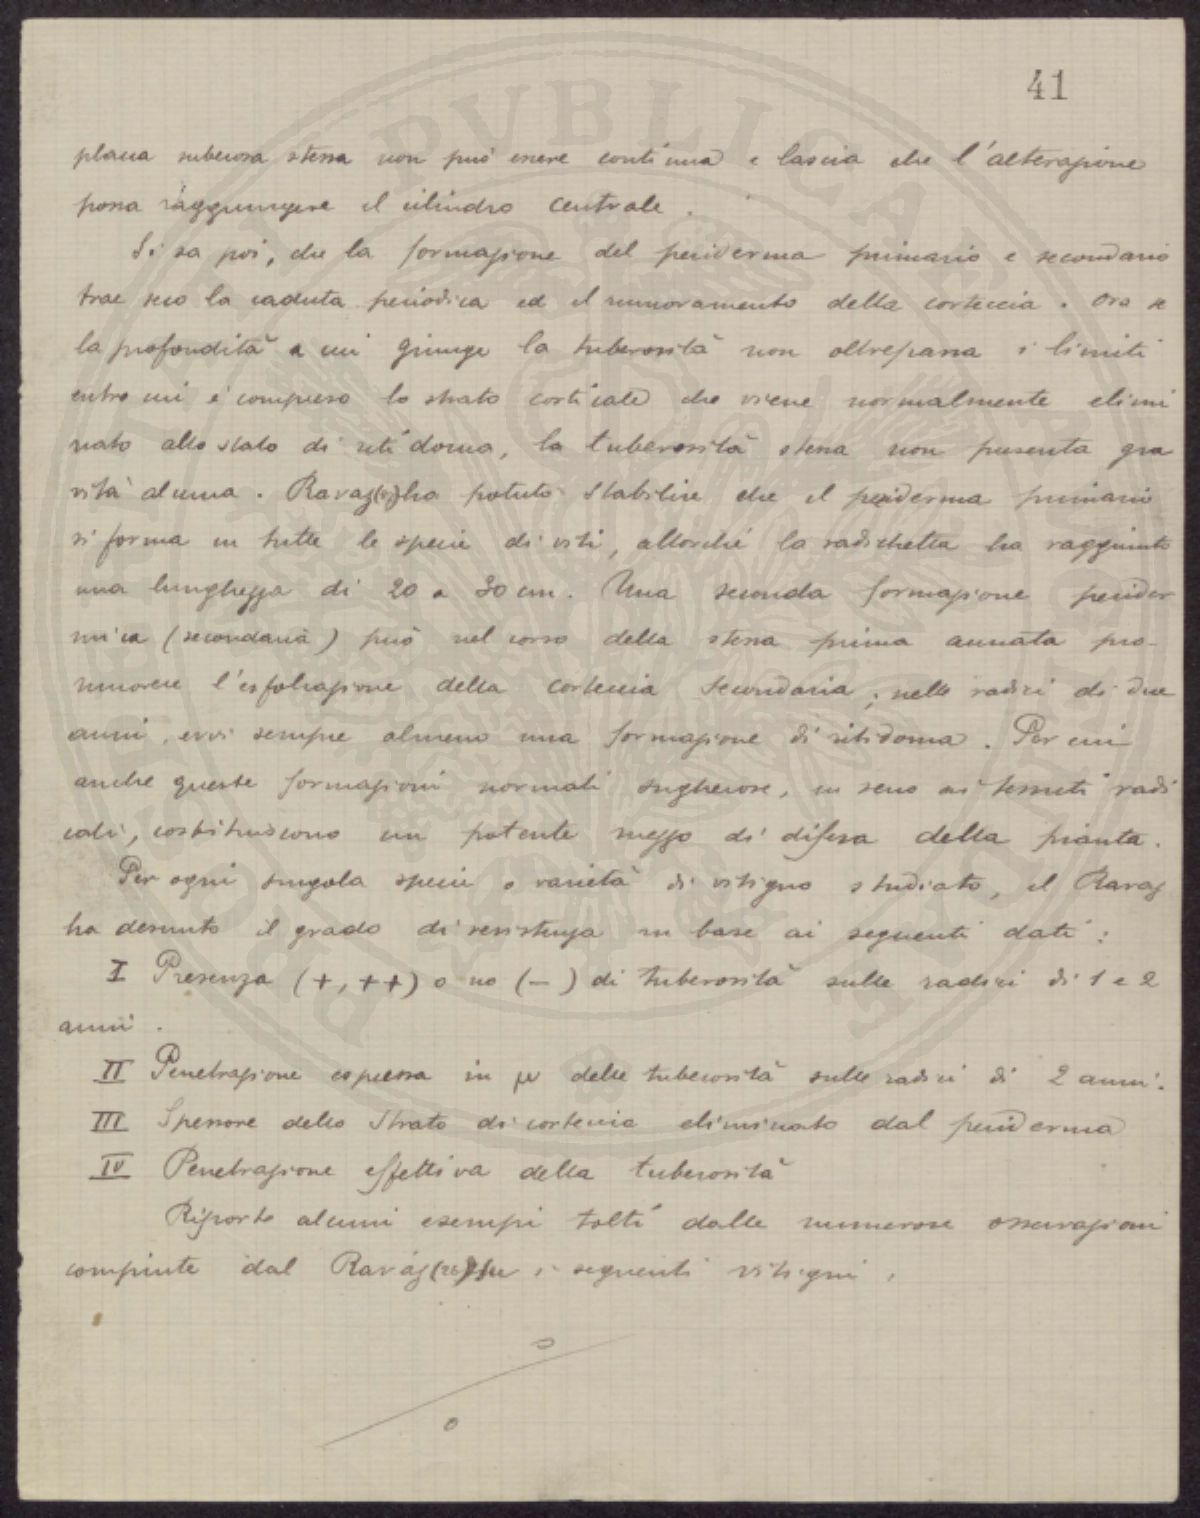 41
placca suberosa stessa non può essere continua e lascia che l'alterazione
possa raggiungere il cilindro centrale.
Si sa poi, che la formazione del periderma primario e secondario
trae seco la caduta periodica ed il rinnovamento della corteccia. Ora se
la profondità a cui giunge la tuberosità non oltrepassa i limiti
entro cui è compreso lo strato corticale che viene normalmente elimi
nato allo stato di ritidoma, la tuberosità stessa non presenta gra
vità alcuna. Ravaz ha potuto stabilire che il periderma primario
si forma in tutte le specie di viti, allorché la radichetta ha raggiunto
una lunghezza di 20 a 30 cm. Una seconda formazione perider
mica (secondaria) può nel corso della stessa prima annata pro-
muovere l'esfoliazione della corteccia secondaria; nelle radici di due
anni, evvi sempre almeno una formazione di ritidoma. Per cui
anche queste formazioni normali sugherose, in seno ai tessuti radi
cali, costituiscono un potente mezzo di difesa della pianta.
Per ogni singola specie o varietà di vitigno studiato, il Ravaz
ha desunto il grado di resistenza in base ai seguenti dati:
I Presenza (+, ++) o no (-) di tuberosità sulle radici di 1 e 2
anni.
II Penetrazione espressa in μ delle tuberosità sulle radici di 2 anni.
III Spessore dello strato di corteccia eliminato dal periderma
IV Penetrazione effettiva della tuberosità
Riporto alcuni esempi tolti dalle numerose osservazioni
compiute dal Ravaz su i seguenti vitigni: